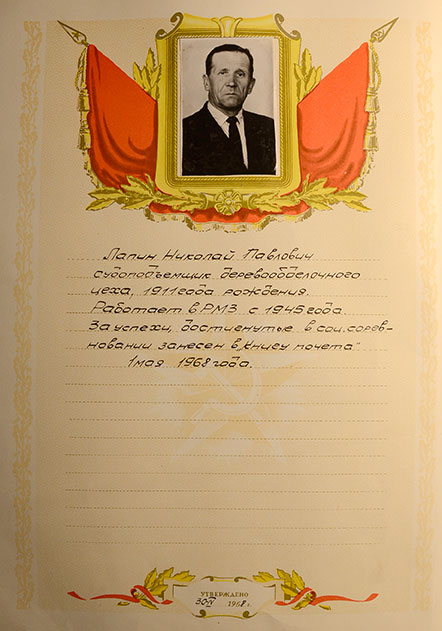 Лапин Николай Павлович
судоподъемщик деревообделочного
цеха, 1911 года рождения.
Работает в РМЗ с 1945 года.
За успехи, достигнутые в соц. сорев-
новании занесен в „Книгу почета"
1 мая 1968 года.
УТВЕРЖДЕНО
30-IV 1968 г.